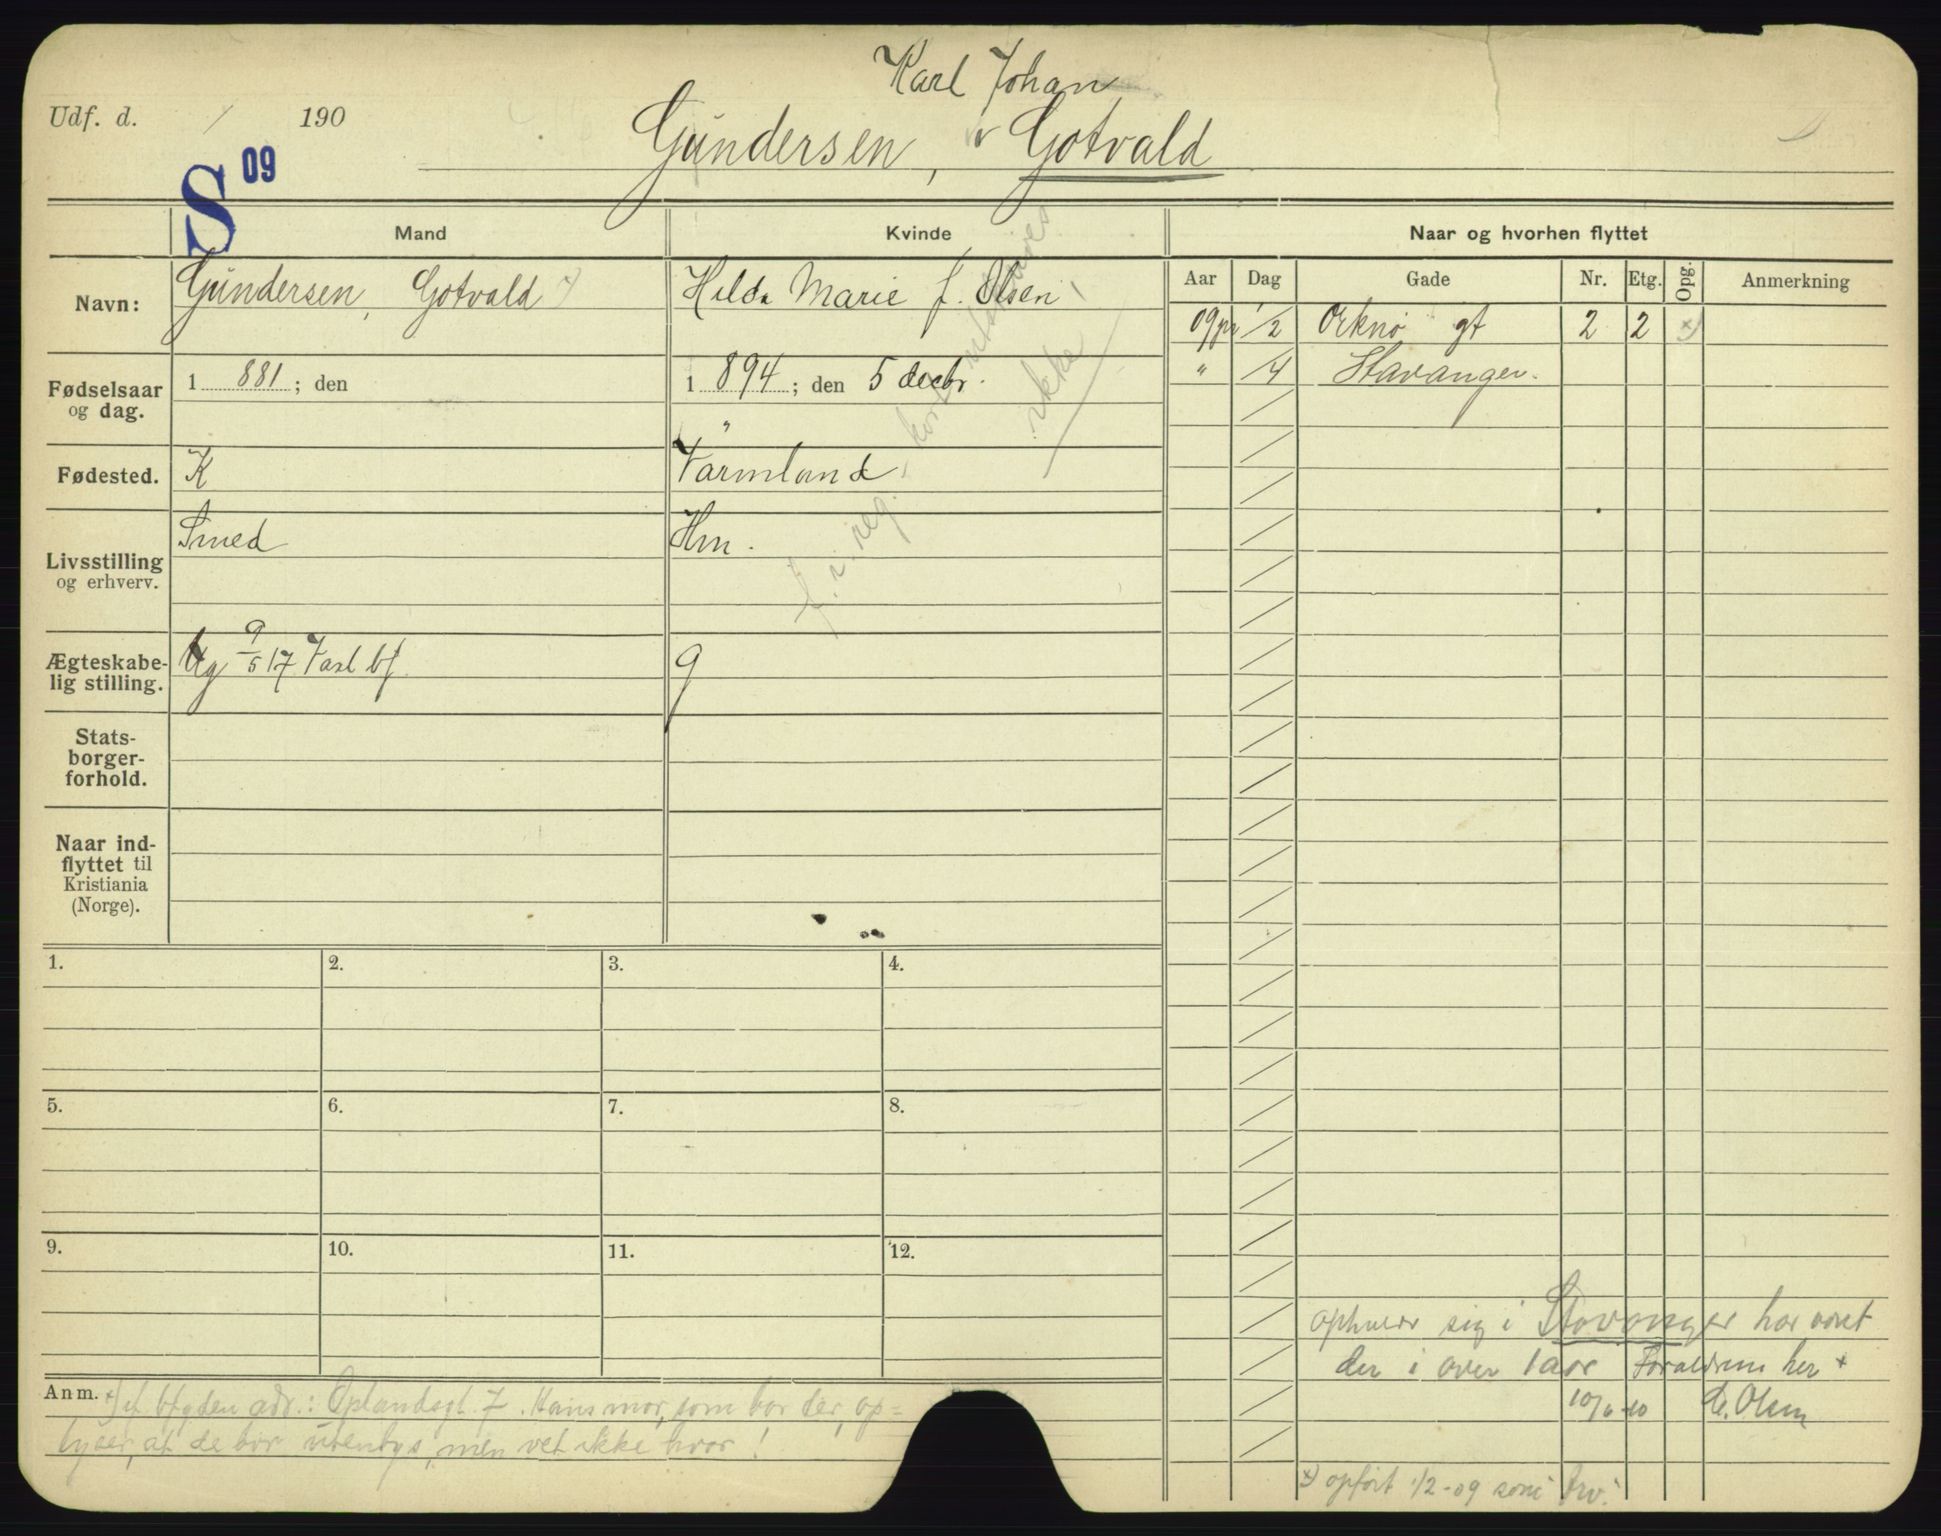 Karl Johan
Udf. d. / 190
Gundersen, Gotvald
S 09
Mand Kvinde Naar og hvorhen flyttet
Aar Dag Gade Nr. Etg. Opg. Anmerkning
Navn: Gundersen, Gotvald x) Hilda Marie f. Olsen
09 1/2 Orknø gt 2 2 x)
" /4 Stavanger.
Fødselsaar og dag. 1 881 ; den 1 894 ; den 5 decbr.
Fødested. K Varmland
Livsstilling og erhverv. Smed Hm.
f. i reg. ikke
Ægteskabe-
lig stilling. Ug 9/5 17 bf. g
Stats-
borger-
forhold.
Naar ind-
flyttet til
Kristiania
(Norge).
1. 2. 3. 4.
5. 6. 7. 8.
9. 10. 11. 12.
opholder sig i Stavanger har været
der i over 1 aar Forældrene her +
10/6 -10 Olsen
Anm. x) adr.: Oplandsgt. 7. Hans mor, som bor der, op=
lyser, at de bor utenbys, men vet ikke hvor!
x) opført 1/2-09 som